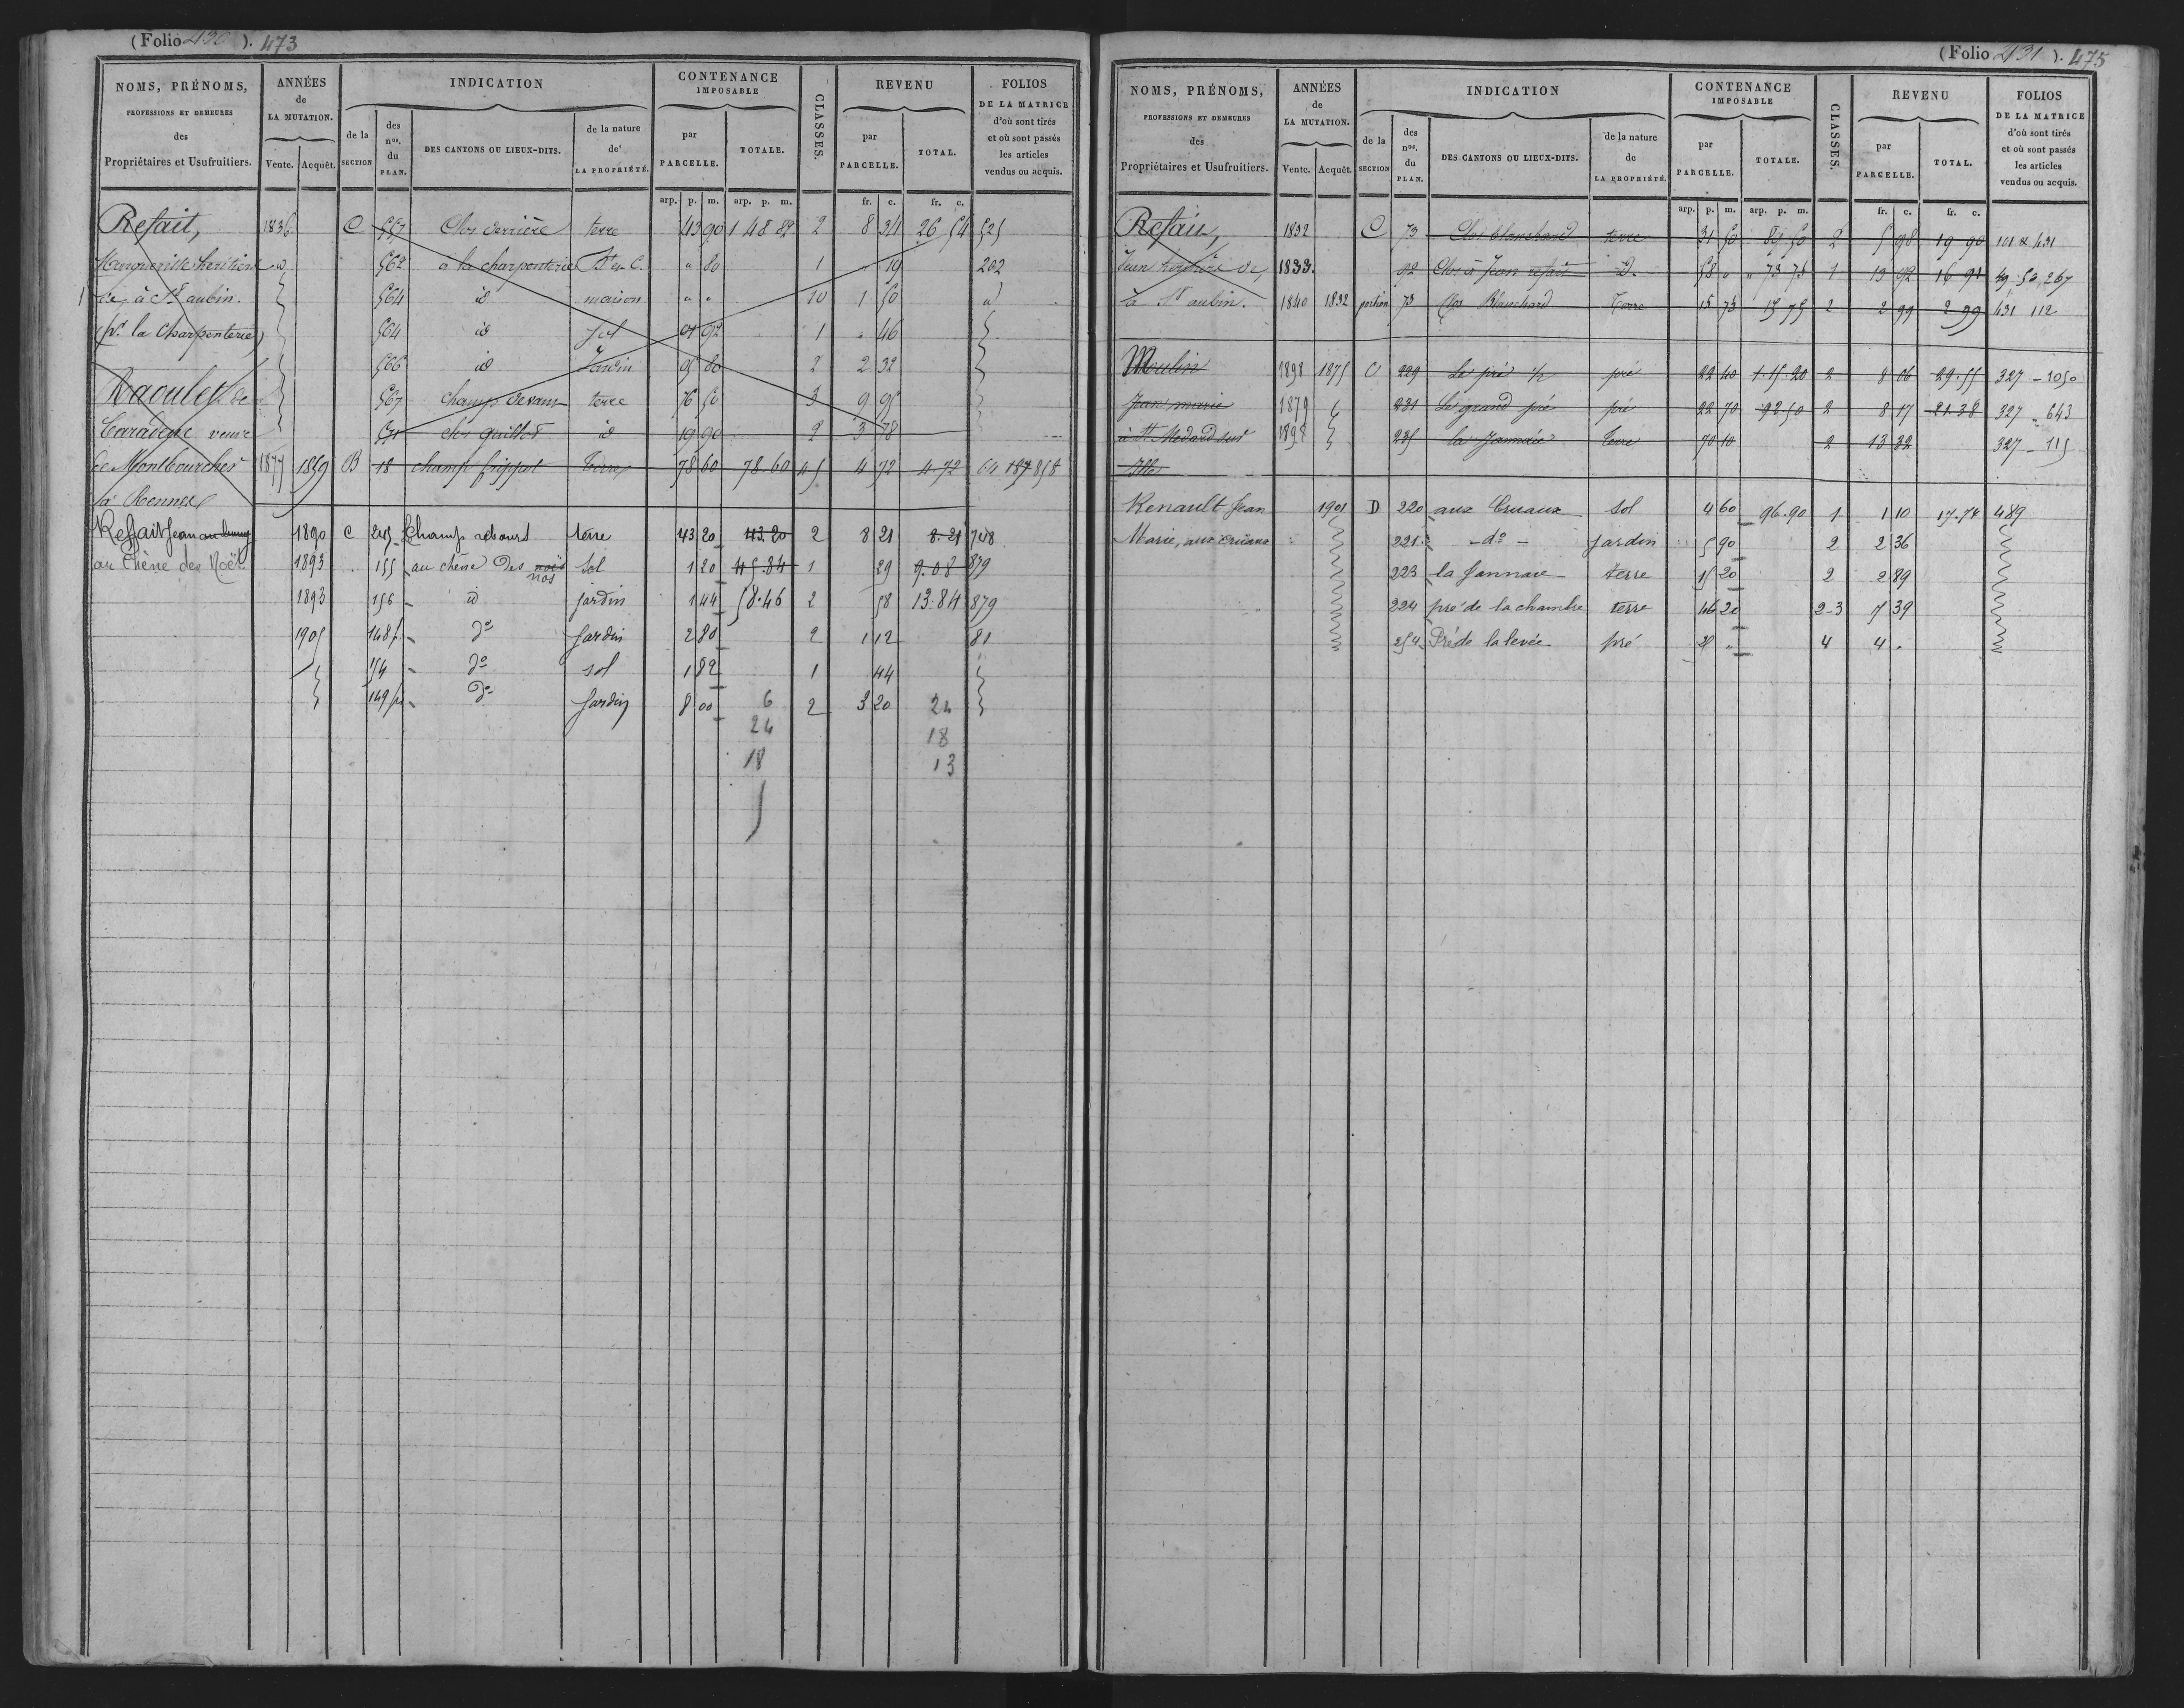 (Folio 430). 473
NOMS, PRÉNOMS, PROFESSIONS ET DEMEURES des Propriétaires et Usufruitiers.
ANNÉES de LA MUTATION. Vente. Acquêt.
INDICATION
de la SECTION
des nos. du PLAN.
DES CANTONS OU LIEUX-DITS.
de la nature de LA PROPRIÉTÉ.
CONTENANCE IMPOSABLE
par PARCELLE. TOTALE.
CLASSES.
REVENU
par PARCELLE. TOTAL.
FOLIOS DE LA MATRICE d'où sont tirés et où sont passés les articles vendus ou acquis.
arp. p. m. arp. p. m. fr. c. fr. c.
Refait, 1836 C 557 Clos derrière terre 43 90 1 48 82 2 8 34 26 54 525
héritiers id 562 à la charpenterie Bt et C. " 80 1 " 19 202
de, à St aubin. 564 id maison " " 10 1 50 id
(pr. la Charpenterie) 564 id sol 01 92 1 " 46
566 id Jardin 05 80 2 2 32
Raoulet de 567 champ devant terre 76 50 3 9 95
Caradeuc veuve 571 clos guillot id 19 90 2 3 78
de Montbourcher 1877 1859 B 18 champ frippet terre 78 60 78 60 4 5 4 72 4.72 64 187 858
à Rennes
Reffait Jean au bourg 1890 C 245 Champ retours terre 43 20 43.20 2 8 21 8.21 748
au chêne des Noës 1893 155 au chêne des noës nos sol 1 20 45.84 1 29 9.08 879
1893 156 id jardin 1 44 58.46 2 58 13.84 879
1905 148p do Jardin 2 80 2 1 12 81
154 do sol 1 82 1 44
149p do Jardin 8 00 6 2 3 20 24
24 18
18 13
(Folio 431). 475
NOMS, PRÉNOMS, PROFESSIONS ET DEMEURES des Propriétaires et Usufruitiers.
ANNÉES de LA MUTATION. Vente. Acquêt.
INDICATION
de la SECTION
des nos. du PLAN.
DES CANTONS OU LIEUX-DITS.
de la nature de LA PROPRIÉTÉ.
CONTENANCE IMPOSABLE
par PARCELLE. TOTALE.
CLASSES.
REVENU
par PARCELLE. TOTAL.
FOLIOS DE LA MATRICE d'où sont tirés et où sont passés les articles vendus ou acquis.
arp. p. m. arp. p. m. fr. c. fr. c.
Refait, 1832 C 73 Clos blanchard terre 31 50 89 50 2 5 98 19 90 101 & 431
Jean 1833. 92 Clos à Jean refait id. 58 " " 73 75 1 13 92 16 91 49, 52, 267
à St aubin. 1840 1832 portion 73 Clos Blanchard Terre 15 75 15 75 2 2 99 2 99 431 112
Moulin 1898 1875 C 229 Le pré pré 22 40 1.15.20 2 8 06 29.55 327 - 1050
Jean marie 1879 231 Le grand pré pré 22 70 92 50 2 8 17 21.38 327 - 643
à St Medard sur 1898 235 la Jannaie terre 70 10 2 13 32 327 - 115
Ille
Renault Jean 1901 D 220 aux Cruaux sol 4 60 96.90 1 1 10 17.74 489
Marie, aux Cruaux 221 - do - jardin 5 90 2 2 36
223 la Jannaie terre 15 20 2 2 89
224 pré de la chambre terre 46 20 2-3 7 39
254 Pré de la levée pré 25 " 4 4 "